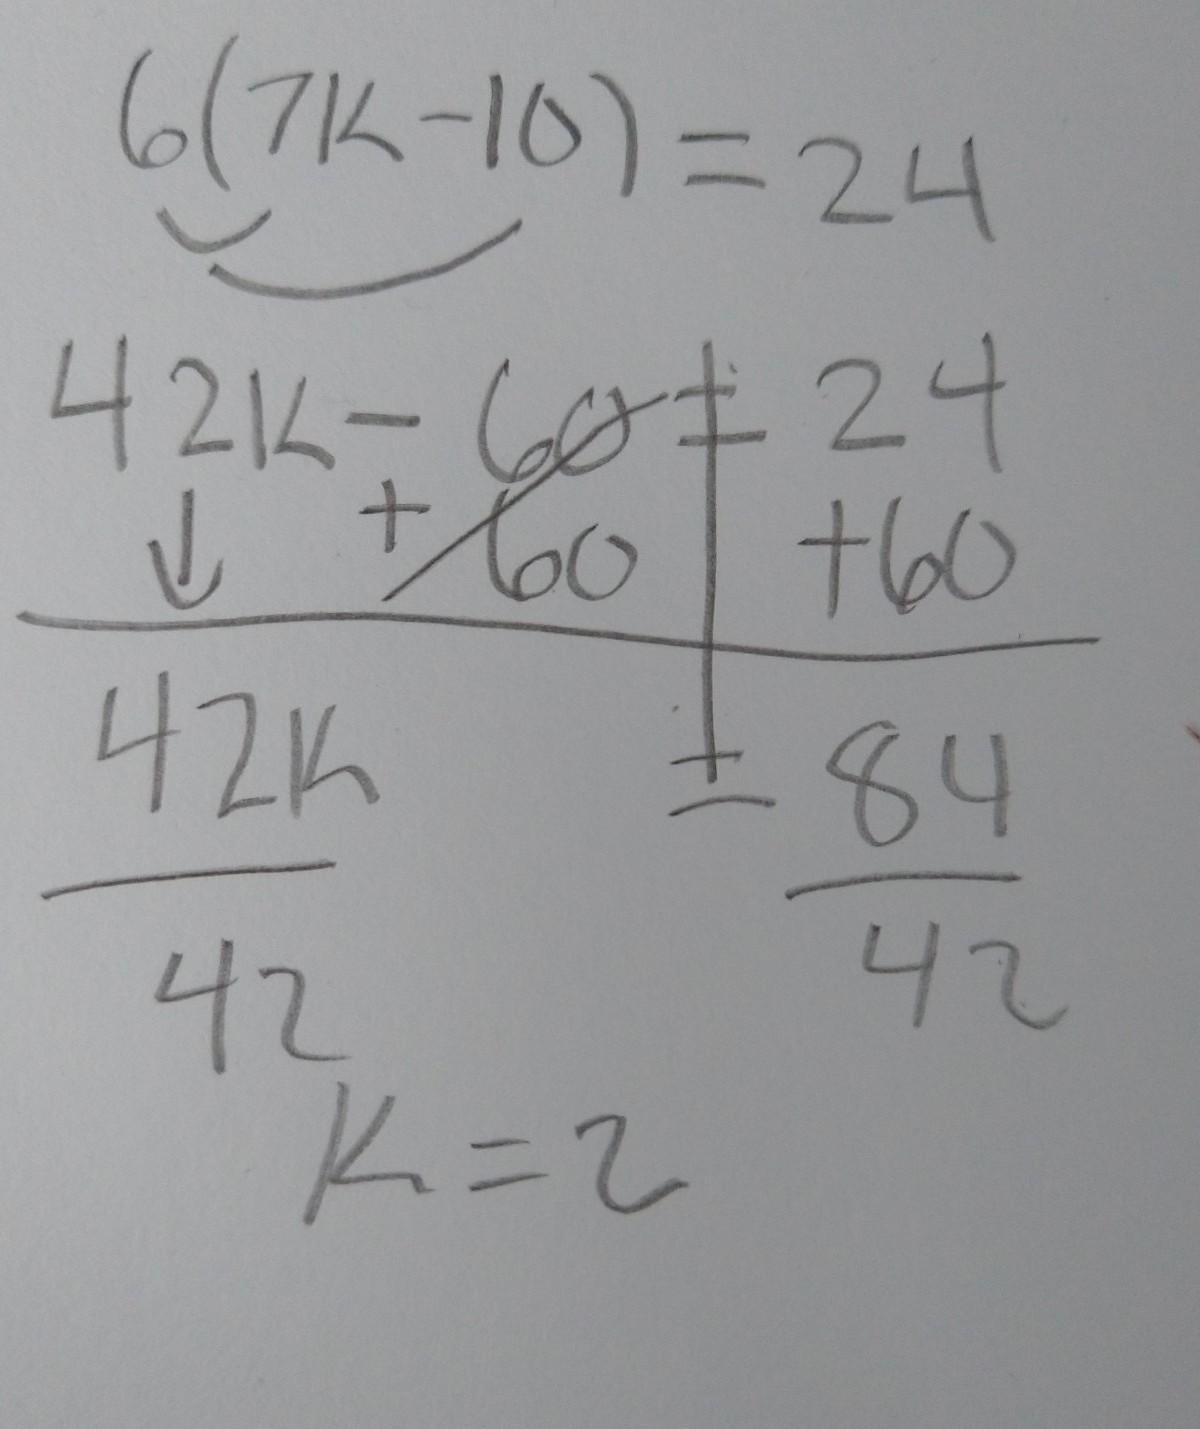 6(7K-10) = 24
42K - 60 = 24
+ 60 +60
42K = 84
42 42
K = 2